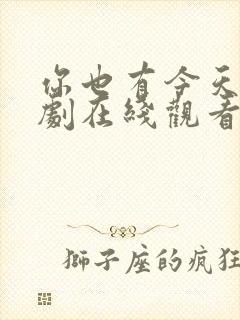 你也有今天
劇在綫觀看
獅子座的疯狂